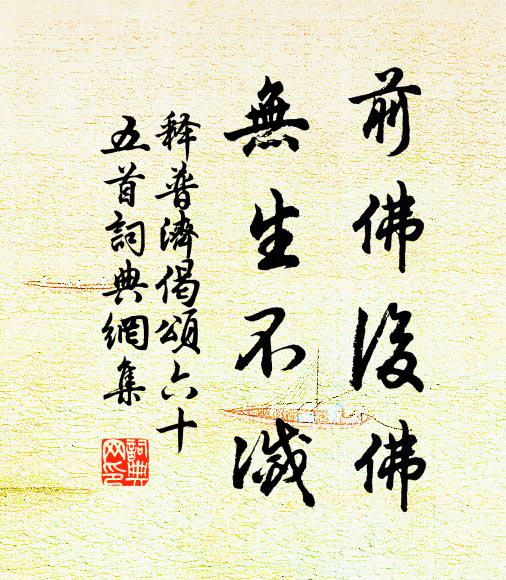 前佛後佛
無生不滅
释普濟偈頌六十
五首詞典網集
詞典网印